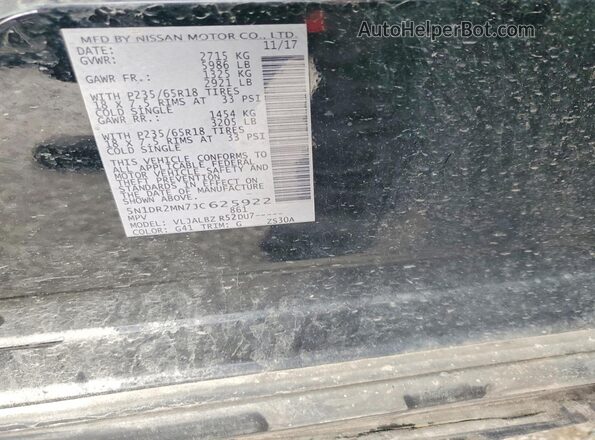 AutoHelperBot.com
MFD BY NISSAN MOTOR CO., LTD.
DATE: 11/17
GVWR: 2715 KG
5986 LB
GAWR FR.: 1325 KG
2921 LB
WITH P235/65R18 TIRES
18 X 7.5 RIMS AT 33 PSI
COLD SINGLE
GAWR RR.: 1454 KG
3205 LB
WITH P235/65R18 TIRES
18 X 7.5 RIMS AT 33 PSI
COLD SINGLE
THIS VEHICLE CONFORMS TO
ALL APPLICABLE FEDERAL
MOTOR VEHICLE SAFETY
AND THEFT PREVENTION
STANDARDS IN EFFECT ON
THE DATE OF MANUFACTURE
SHOWN ABOVE.
5N1DR2MN7JC625922
MPV 861
MODEL: VLJALBZ R52DU7-----
COLOR: G41 TRIM: G ZS30A